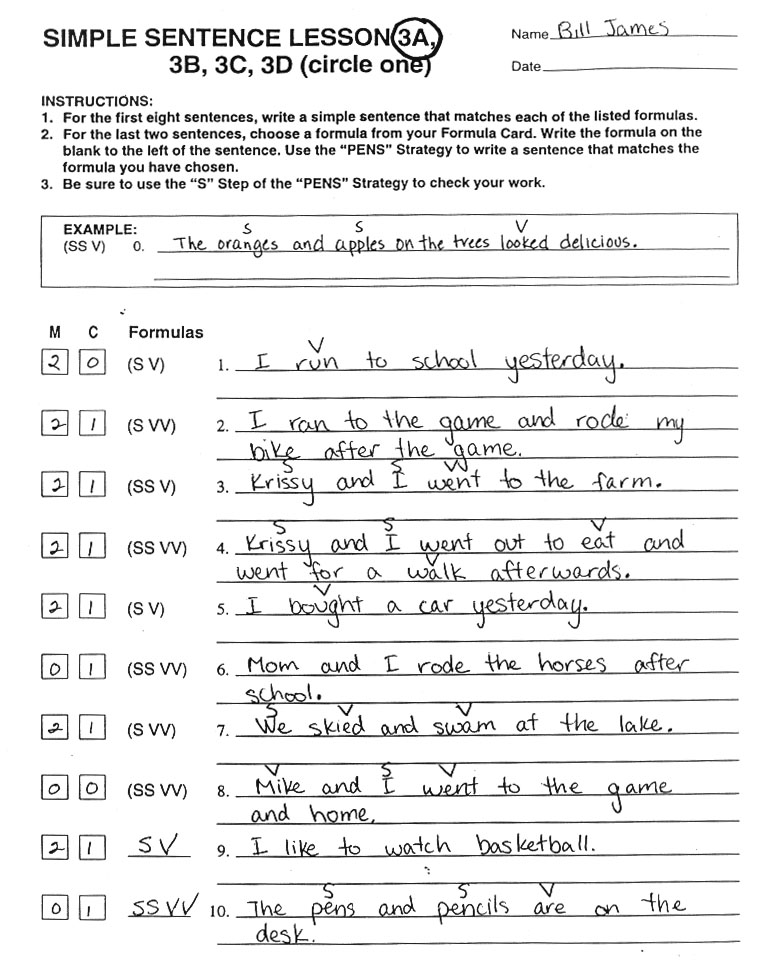 SIMPLE SENTENCE LESSON 3A,
3B, 3C, 3D (circle one)
Name Bill James
Date
INSTRUCTIONS:
1. For the first eight sentences, write a simple sentence that matches each of the listed formulas.
2. For the last two sentences, choose a formula from your Formula Card. Write the formula on the
blank to the left of the sentence. Use the “PENS” Strategy to write a sentence that matches the
formula you have chosen.
3. Be sure to use the “S” Step of the “PENS” Strategy to check your work.
EXAMPLE:
S S V
(SS V) 0. The oranges and apples on the trees looked delicious.
M C Formulas
V
2 0 (S V) 1. I run to school yesterday.
2 1 (S VV) 2. I ran to the game and rode my
bike after the game.
S S VV
2 1 (SS V) 3. Krissy and I went to the farm.
S S V
2 1 (SS VV) 4. Krissy and I went out to eat and
V V
went for a walk afterwards.
V
2 1 (S V) 5. I bought a car yesterday.
0 1 (SS VV) 6. Mom and I rode the horses after
school.
S V V
2 1 (S VV) 7. We skied and swam at the lake.
V S V
0 0 (SS VV) 8. Mike and I went to the game
and home.
2 1 SV 9. I like to watch basketball.
S S V
0 1 SS VV 10. The pens and pencils are on the
desk.